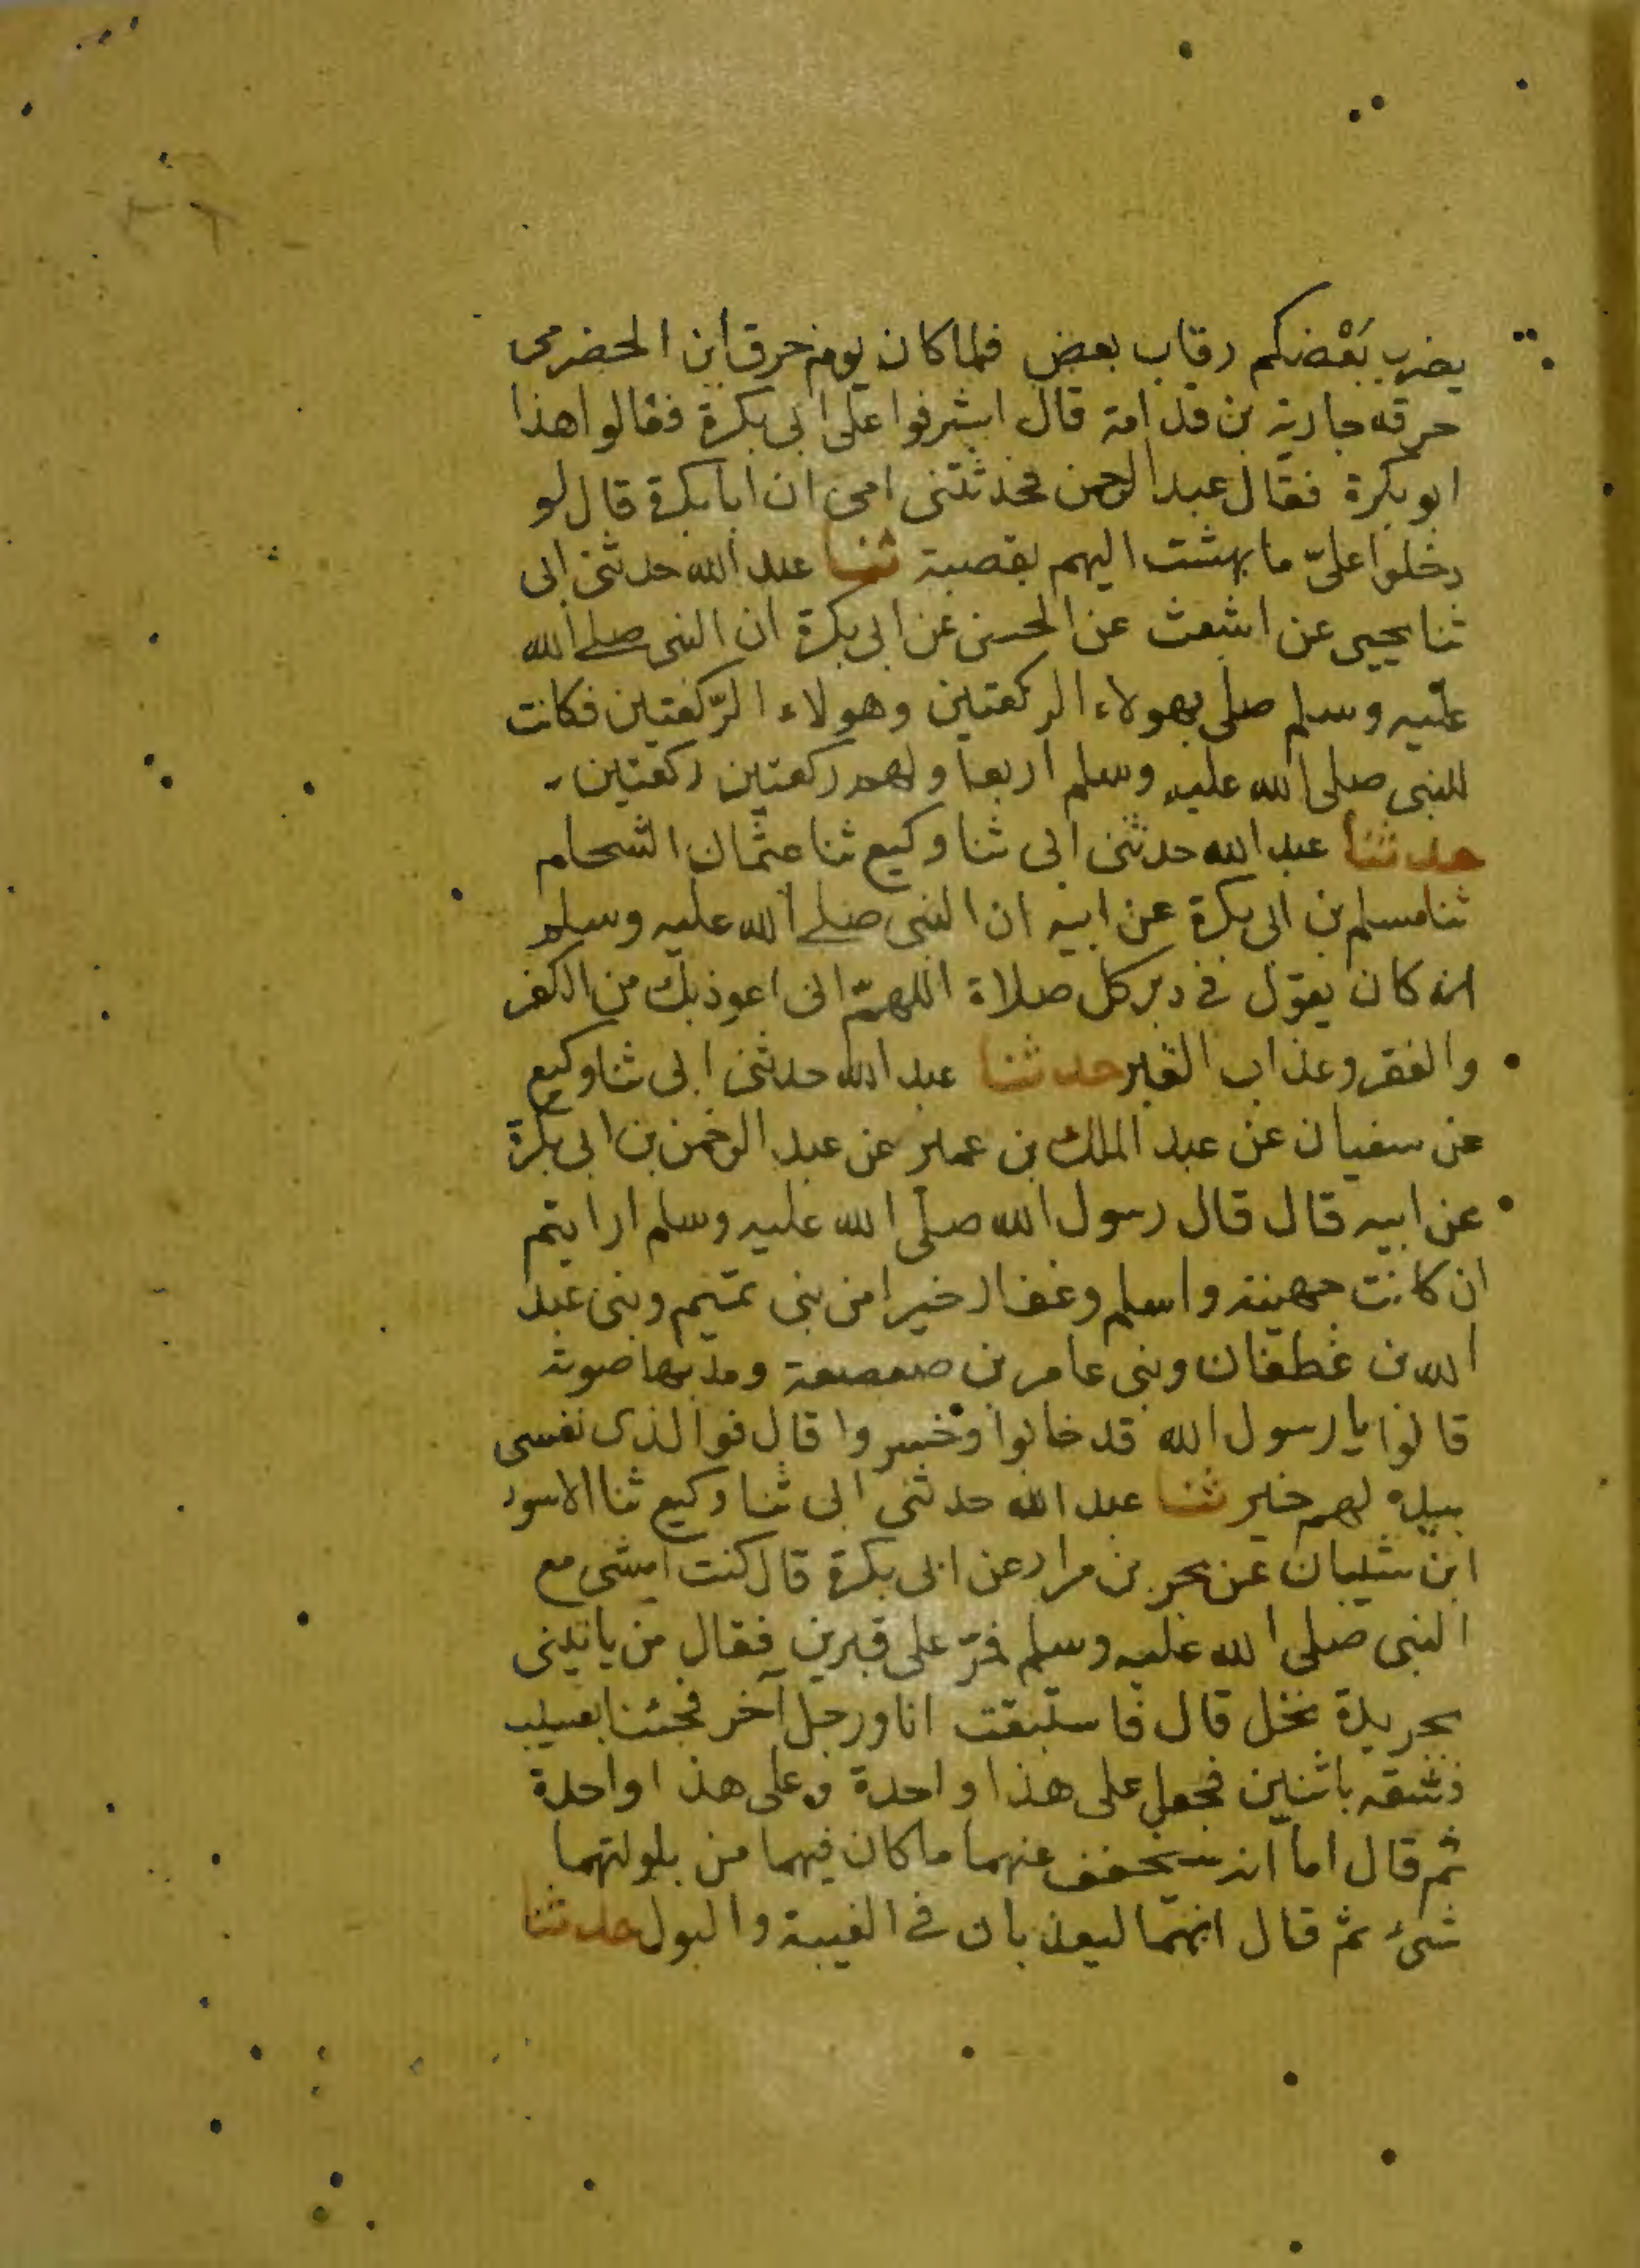 يضرب بَعْضكم رقاب بعض فلما كان يوم حرق ابن الحضرمى
حرقه جارية بن قدامة قال اشرفوا على ابى بكرة فقالوا هذا
ابو بكرة فقال عبد الرحمن فحدثتنى امى ان ابا بكرة قال لو
دخلوا علىّ ما بهشت اليهم بقصبة ثنا عبد الله حدثنى ابى
ثنا يحيى عن اشعث عن الحسن عن ابى بكرة ان النبى صلى الله
عليه وسلم صلى بهولاء الركعتين وهولاء الرّكعتين فكانت
للنبى صلى الله عليه وسلم اربعا ولهم ركعتين ركعتين
حدثنا عبد الله حدثنى ابى ثنا وكيع ثنا عثمان الشحام
ثنا مسلم بن ابى بكرة عن ابيه ان النبى صلى الله عليه وسلم
انه كان يقول فى دبر كل صلاة اللهمّ انى اعوذ بك من الكفر
والفقر وعذاب القبر حدثنا عبد الله حدثنى ابى ثنا وكيع
عن سفيان عن عبد الملك بن عمير عن عبد الرحمن بن ابى بكرة
عن ابيه قال قال رسول الله صلى الله عليه وسلم ارايتم
ان كانت جهينة واسلم وغفار خيرا من بنى تميم وبنى عبد
الله بن غطفان وبنى عامر بن صعصعة ومد بها صوته
قالوا يا رسول الله قد خابوا وخسروا قال فوالذى نفسى
بيده لهم خير ثنا عبد الله حدثنى ابى ثنا وكيع ثنا الاسود
ابن شيبان عن بحر بن مرار عن ابى بكرة قال كنت امشى مع
النبى صلى الله عليه وسلم فمرّ على قبرين فقال من ياتينى
بجريدة نخل قال فاستبقت انا ورجل آخر فجئنا بعسيب
فشقه باثنين فجعل على هذا واحدة وعلى هذا واحدة
ثم قال اما انه سيخفف عنهما ما كان فيهما من بلولتهما
شىء ثم قال انهما ليعذبان فى الغيبة والبول حدثنا